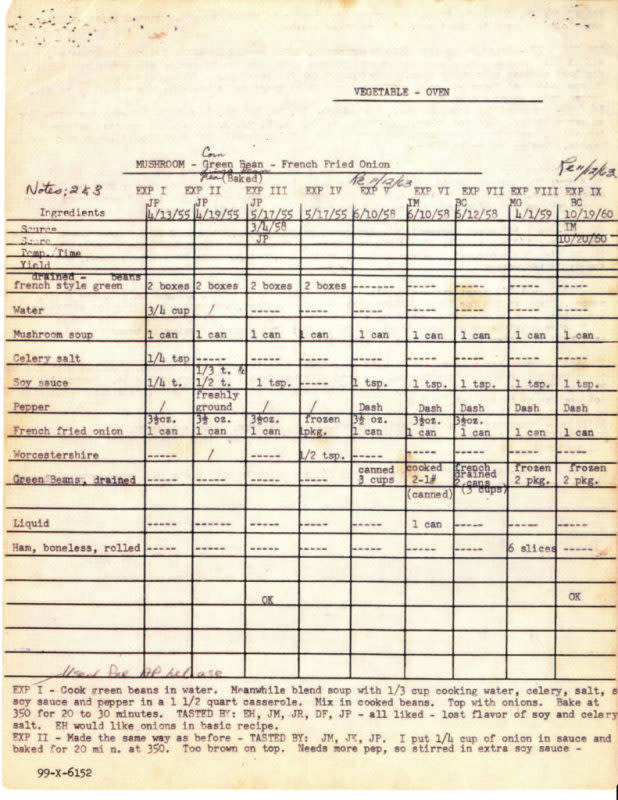 VEGETABLE - OVEN
Corn
MUSHROOM - Green Bean - French Fried Onion
(Baked)
Re 11/12/63
Re 11/12/63
Notes; 2 & 3
EXP I EXP II EXP III EXP IV EXP V EXP VI EXP VII EXP VIII EXP IX
JP JP JP IM BC MG BC
Ingredients 4/13/55 4/19/55 5/17/55 5/17/55 6/10/58 6/10/58 6/12/58 4/1/59 10/19/60
Source 3/4/58 IM
JP 10/20/60
Temp./Time
Yield
drained - beans
french style green 2 boxes 2 boxes 2 boxes 2 boxes ------- ----- ----- ----- -----
Water 3/4 cup / ----- ----- ----- ----- ----- ----- -----
Mushroom soup 1 can 1 can 1 can 1 can 1 can 1 can 1 can 1 can 1 can
Celery salt 1/4 tsp ----- ----- ----- ----- ----- ----- ----- -----
1/3 t. &
Soy sauce 1/4 t. 1/2 t. 1 tsp. ----- 1 tsp. 1 tsp. 1 tsp. 1 tsp. 1 tsp.
freshly
Pepper / ground / / Dash Dash Dash Dash Dash
3½oz. 3½ oz. 3½oz. frozen 3½ oz. 3½oz. 3½oz.
French fried onion 1 can 1 can 1 can 1pkg. 1 can 1 can 1 can 1 can 1 can
Worcestershire ----- / ----- 1/2 tsp. ----- ----- ----- ----- -----
canned cooked french frozen frozen
Green Beans, drained ----- ----- ----- ----- 3 cups 2-1# drained 2 pkg. 2 pkg.
2 cans
(canned) (3 cups)
Liquid ----- ------ ----- ----- ----- 1 can ----- ----- -----
Ham, boneless, rolled ----- ----- ----- ----- ----- ----- ----- 6 slices -----
OK OK
Used For AP release
EXP I - Cook green beans in water. Meanwhile blend soup with 1/3 cup cooking water, celery, salt, s
soy sauce and pepper in a 1 1/2 quart casserole. Mix in cooked beans. Top with onions. Bake at
350 for 20 to 30 minutes. TASTED BY: EH, JM, JR, DF, JP - all liked - lost flavor of soy and celery
salt. EH would like onions in basic recipe.
EXP II - Made the same way as before - TASTED BY: JM, JK, JP. I put 1/4 cup of onion in sauce and
baked for 20 mi n. at 350. Too brown on top. Needs more pep, so stirred in extra soy sauce -
99-X-6152